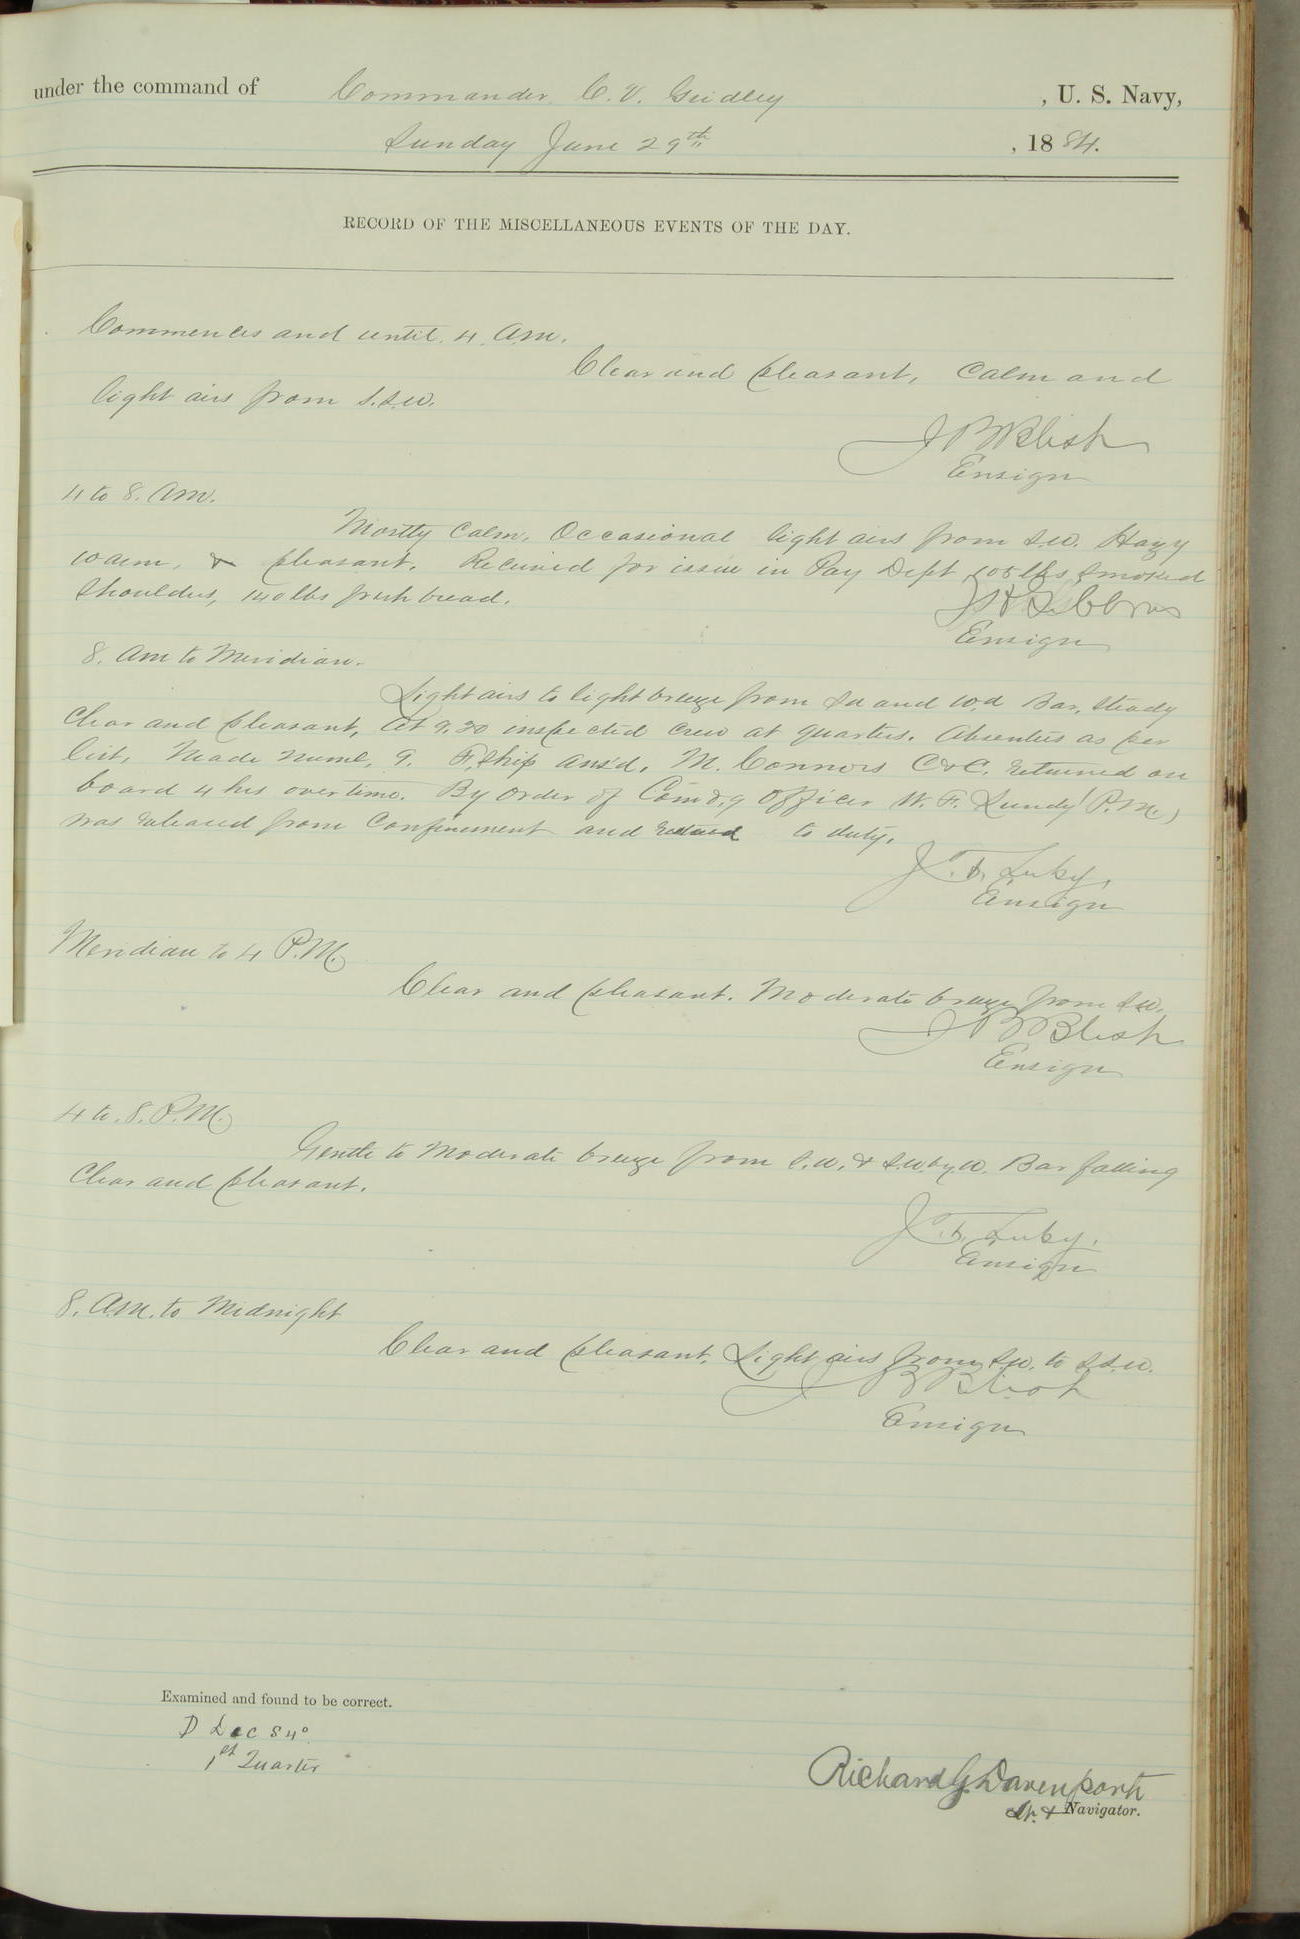 under the command of Commander C. V. Gridley, U. S. Navy,
Sunday June 29th, 1884.
RECORD OF THE MISCELLANEOUS EVENTS OF THE DAY.
Commences and until 4. A.M.
Clear and pleasant, Calm and
light airs from S.S.W.
J B Blish
Ensign
4 to 8. A.M.
Mostly Calm. Occasional light airs from S.W. Hazy
warm, & pleasant. Received for issue in Pay Dept 105 lbs smoked
shoulders, 140 lbs fresh bread.
Ensign
8. A.M to Meridian.
Light airs to light breeze from Sd and Wd Bar. steady
Clear and pleasant, At 9.30 inspected crew at quarters. Absentees as per
list. Made numl. 9. F. Ship ans'd. M. Connors returned on
board 4 hrs overtime. By order of Comd'g Officer W. F. Lundy (P.M.)
was released from Confinement and to duty.
J. F. Luby.
Ensign
Meridian to 4 P.M.
Clear and pleasant. Moderate breeze from S.W.
J B Blish
Ensign
4 to. 8. P.M.
Gentle to Moderate breeze from S.W. & S.W. by W. Bar falling
Clear and pleasant.
J. F. Luby.
Ensign
8. A.M. to Midnight
Clear and pleasant. Light airs from S.W. to S.S.W.
J B Blish
Ensign
Examined and found to be correct.
D Dec 84°
1st Quarter
Richard G. Davenport
Lt. & Navigator.